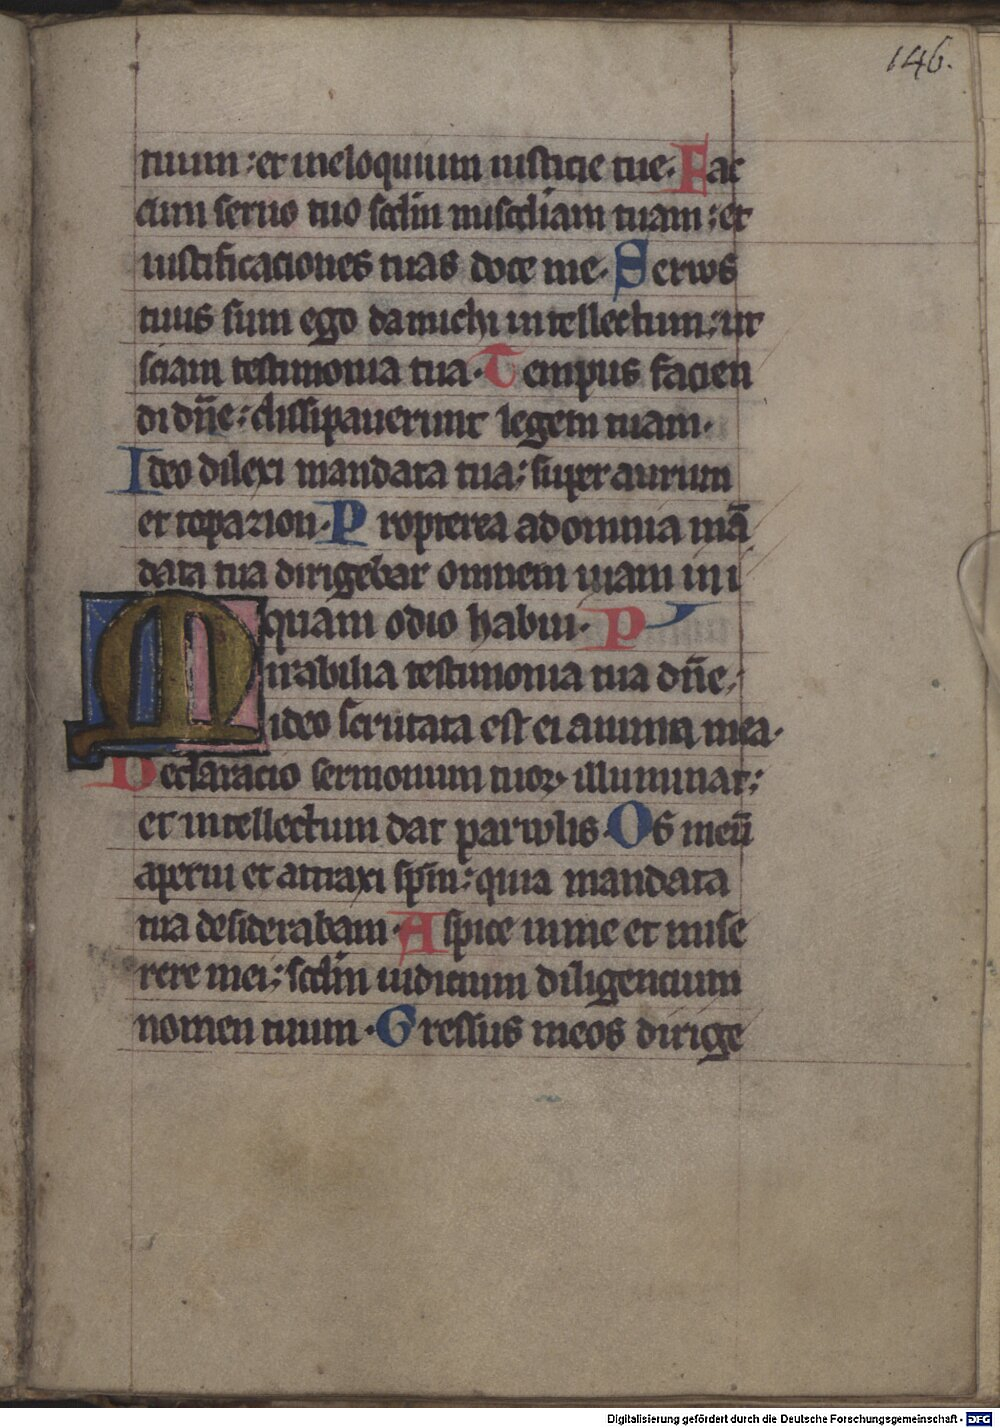 146.
tuum : et in eloquium iusticie tue. Fac
cum seruo tuo scdm miscdiam tuam : et
iustificationes tuas doce me. Seruus
tuus sum ego da michi intellectum : ut
sciam testimonia tua. Tempus facien
di dñe : dissipauerunt legem tuam.
Ideo dilexi mandata tua : super aurum
et topazion. Propterea ad omnia mā
data tua dirigebar omnem uiam ini
quam odio habui. P
Mirabilia testimonia tua dñe :
ideo scrutata est ei anima mea.
Declaracio sermonum tuoꝝ illuminat :
et intellectum dat paruulis. Os meū
aperui et attraxi spm̄ : quia mandata
tua desiderabam. Aspice in me et mise
rere mei : scdm iudicium diligencium
nomen tuum. Gressus meos dirige
Digitalisierung gefördert durch die Deutsche Forschungsgemeinschaft - DFG